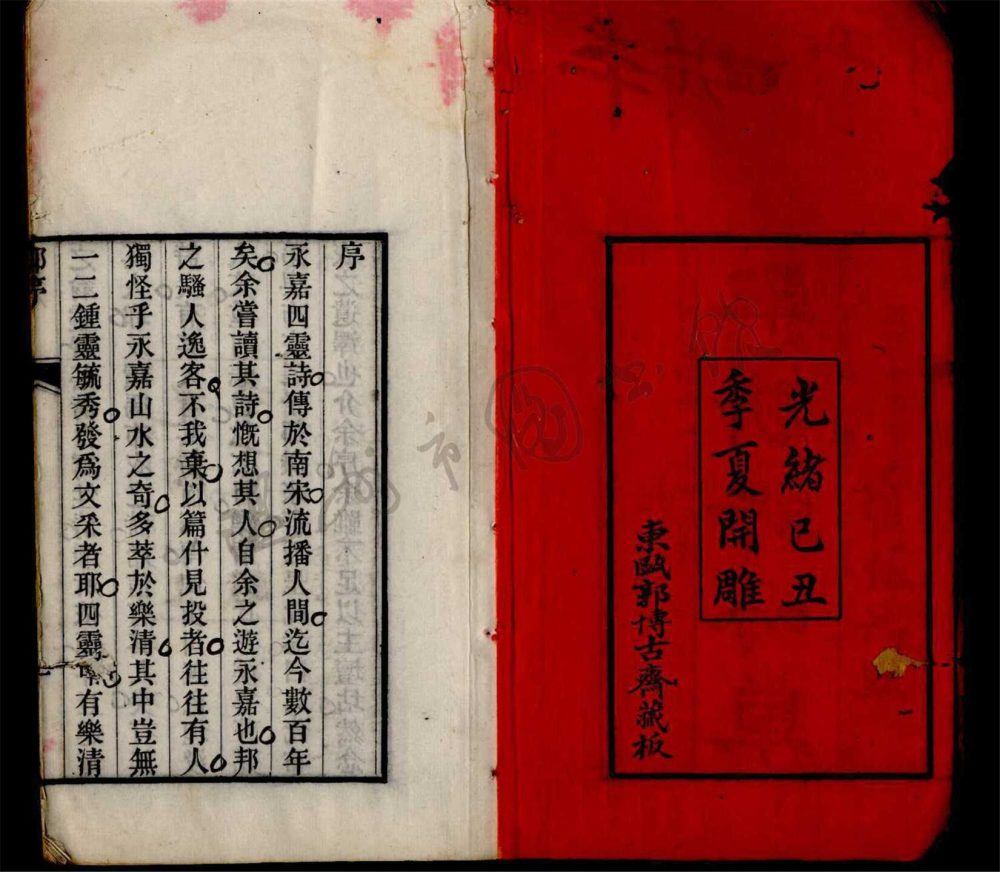 光緒己丑
季夏開雕
東甌郭博古齋藏板
序
永嘉四靈詩傳於南宋流播人間迄今數百年
矣余嘗讀其詩慨想其人自余之遊永嘉也邦
之騷人逸客不我棄以篇什見投者往往有人
獨怪乎永嘉山水之奇多萃於樂清其中豈無
一二鍾靈毓秀發爲文采者耶四靈有樂清
序